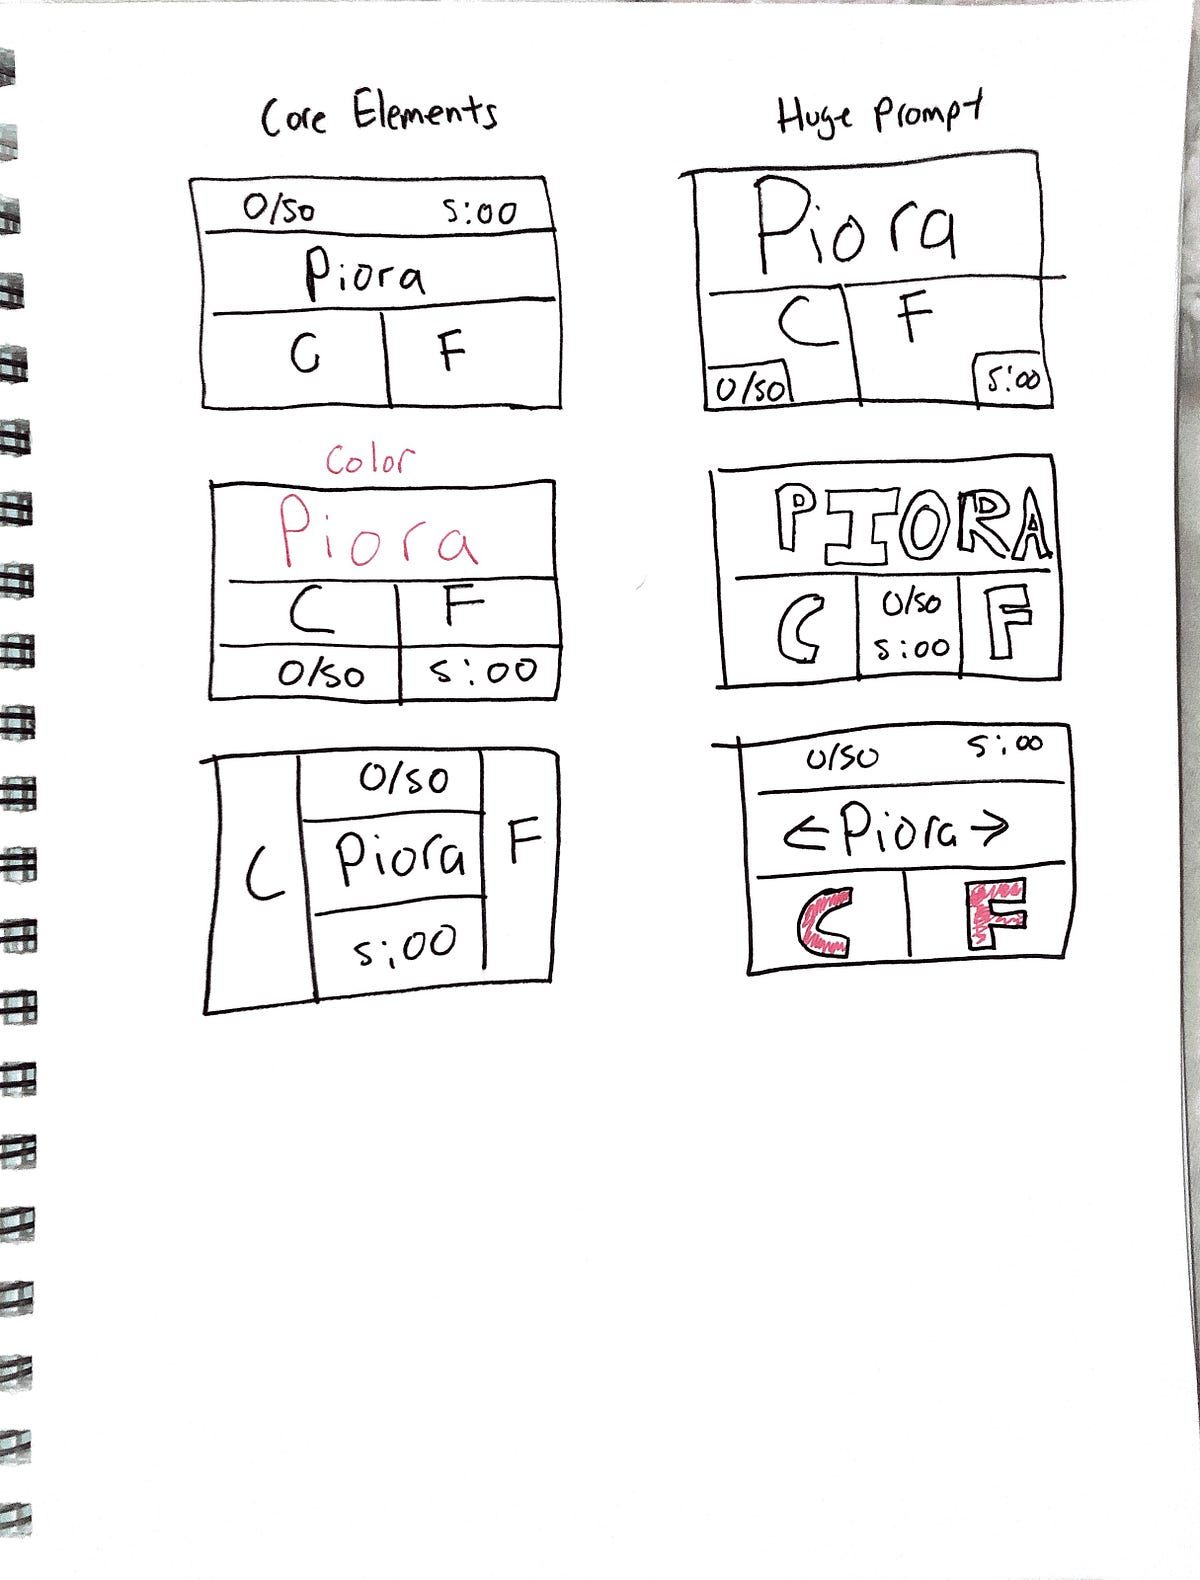 Core Elements
0/50 5:00
Piora
C F
Huge Prompt
Piora
C F
0/50 5:00
Color
Piora
C F
0/50 5:00
PIORA
C 0/50 F
5:00
0/50
C Piora F
5:00
0/50 5:00
<Piora→
C F